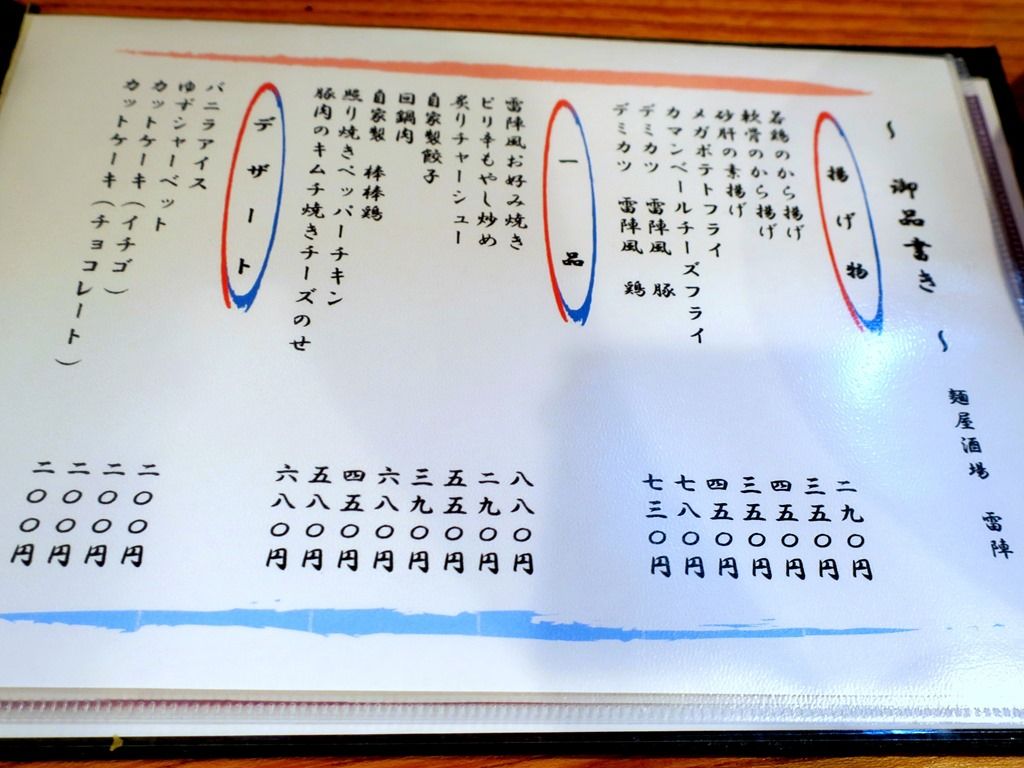 〜 御品書き 〜 麺屋酒場 雷陣
揚げ物
若鶏のから揚げ 二九〇円
軟骨のから揚げ 三五〇円
砂肝の素揚げ 四五〇円
メガポテトフライ 三五〇円
カマンベールチーズフライ 四五〇円
デミカツ 雷陣風 豚 七八〇円
デミカツ 雷陣風 鶏 七三〇円
一品
雷陣風お好み焼き 八八〇円
ピリ辛もやし炒め 二九〇円
炙りチャーシュー 五五〇円
自家製餃子 三九〇円
回鍋肉 六八〇円
自家製 棒棒鶏 四五〇円
照り焼きペッパーチキン 五八〇円
豚肉のキムチ焼きチーズのせ 六八〇円
デザート
バニラアイス 二〇〇円
ゆずシャーベット 二〇〇円
カットケーキ（イチゴ） 二〇〇円
カットケーキ（チョコレート） 二〇〇円